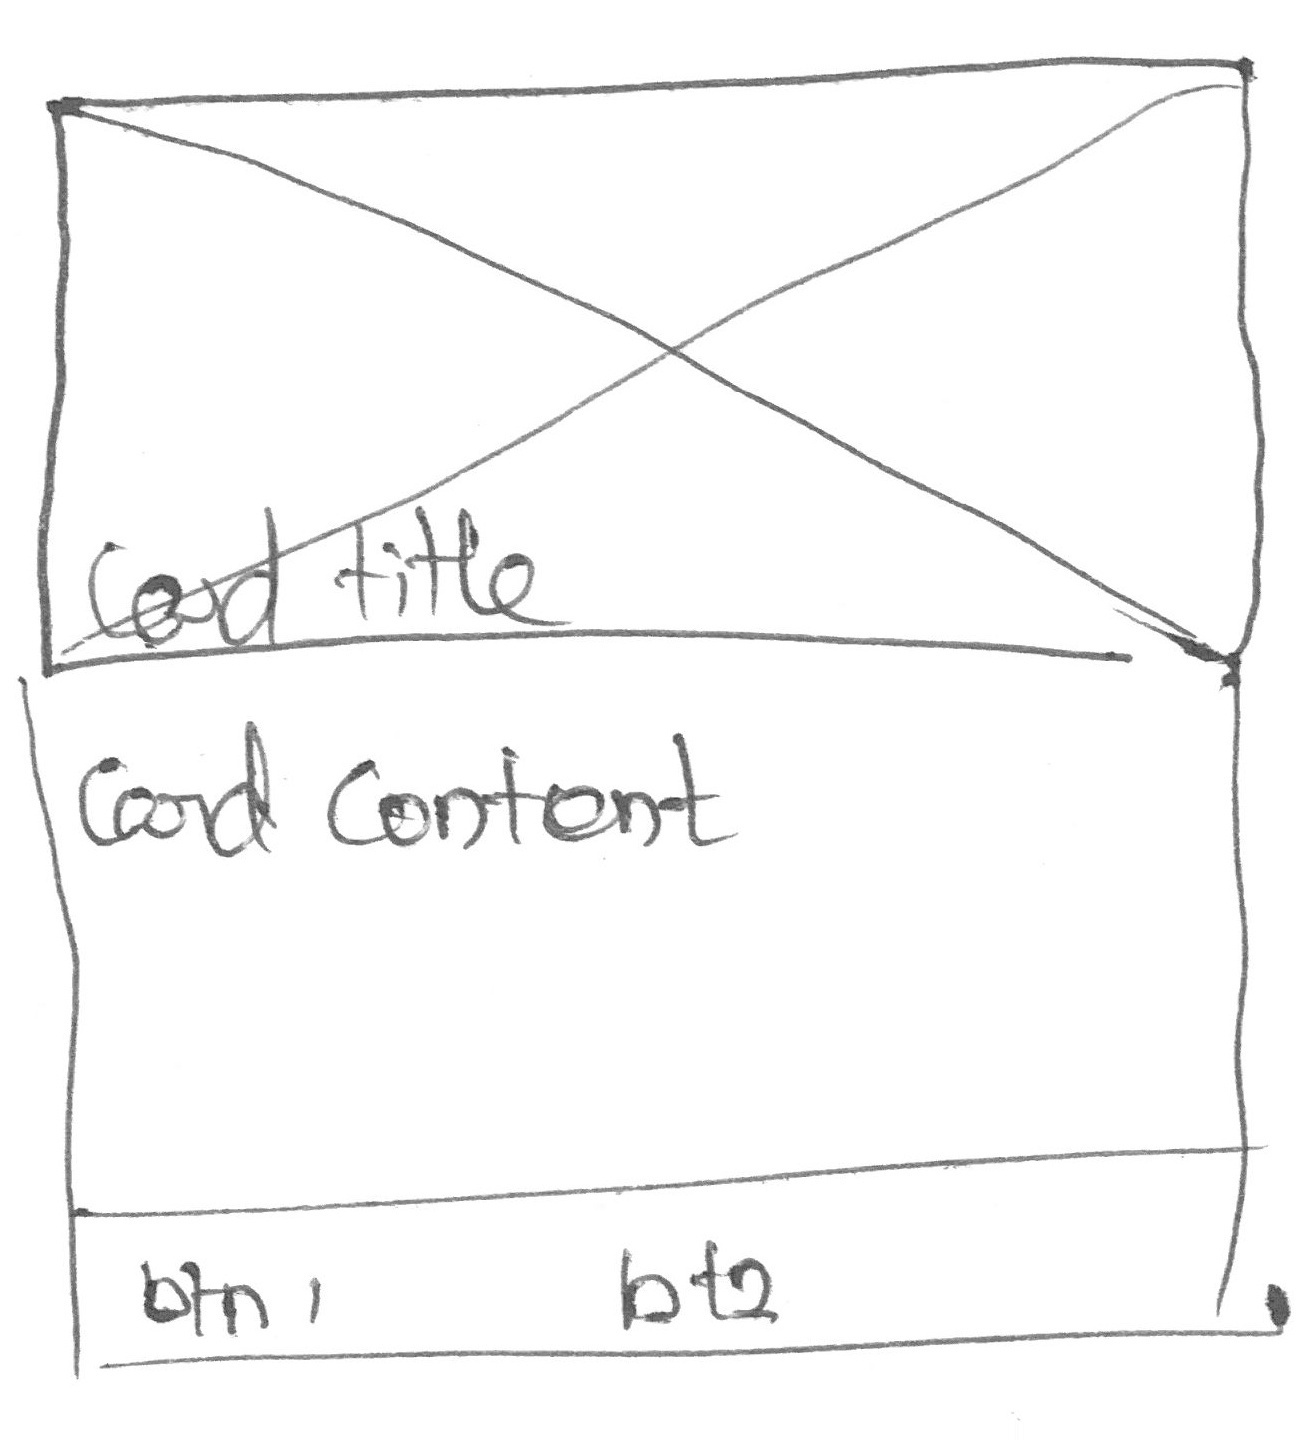 Card title
Card Content
btn 1
bt2